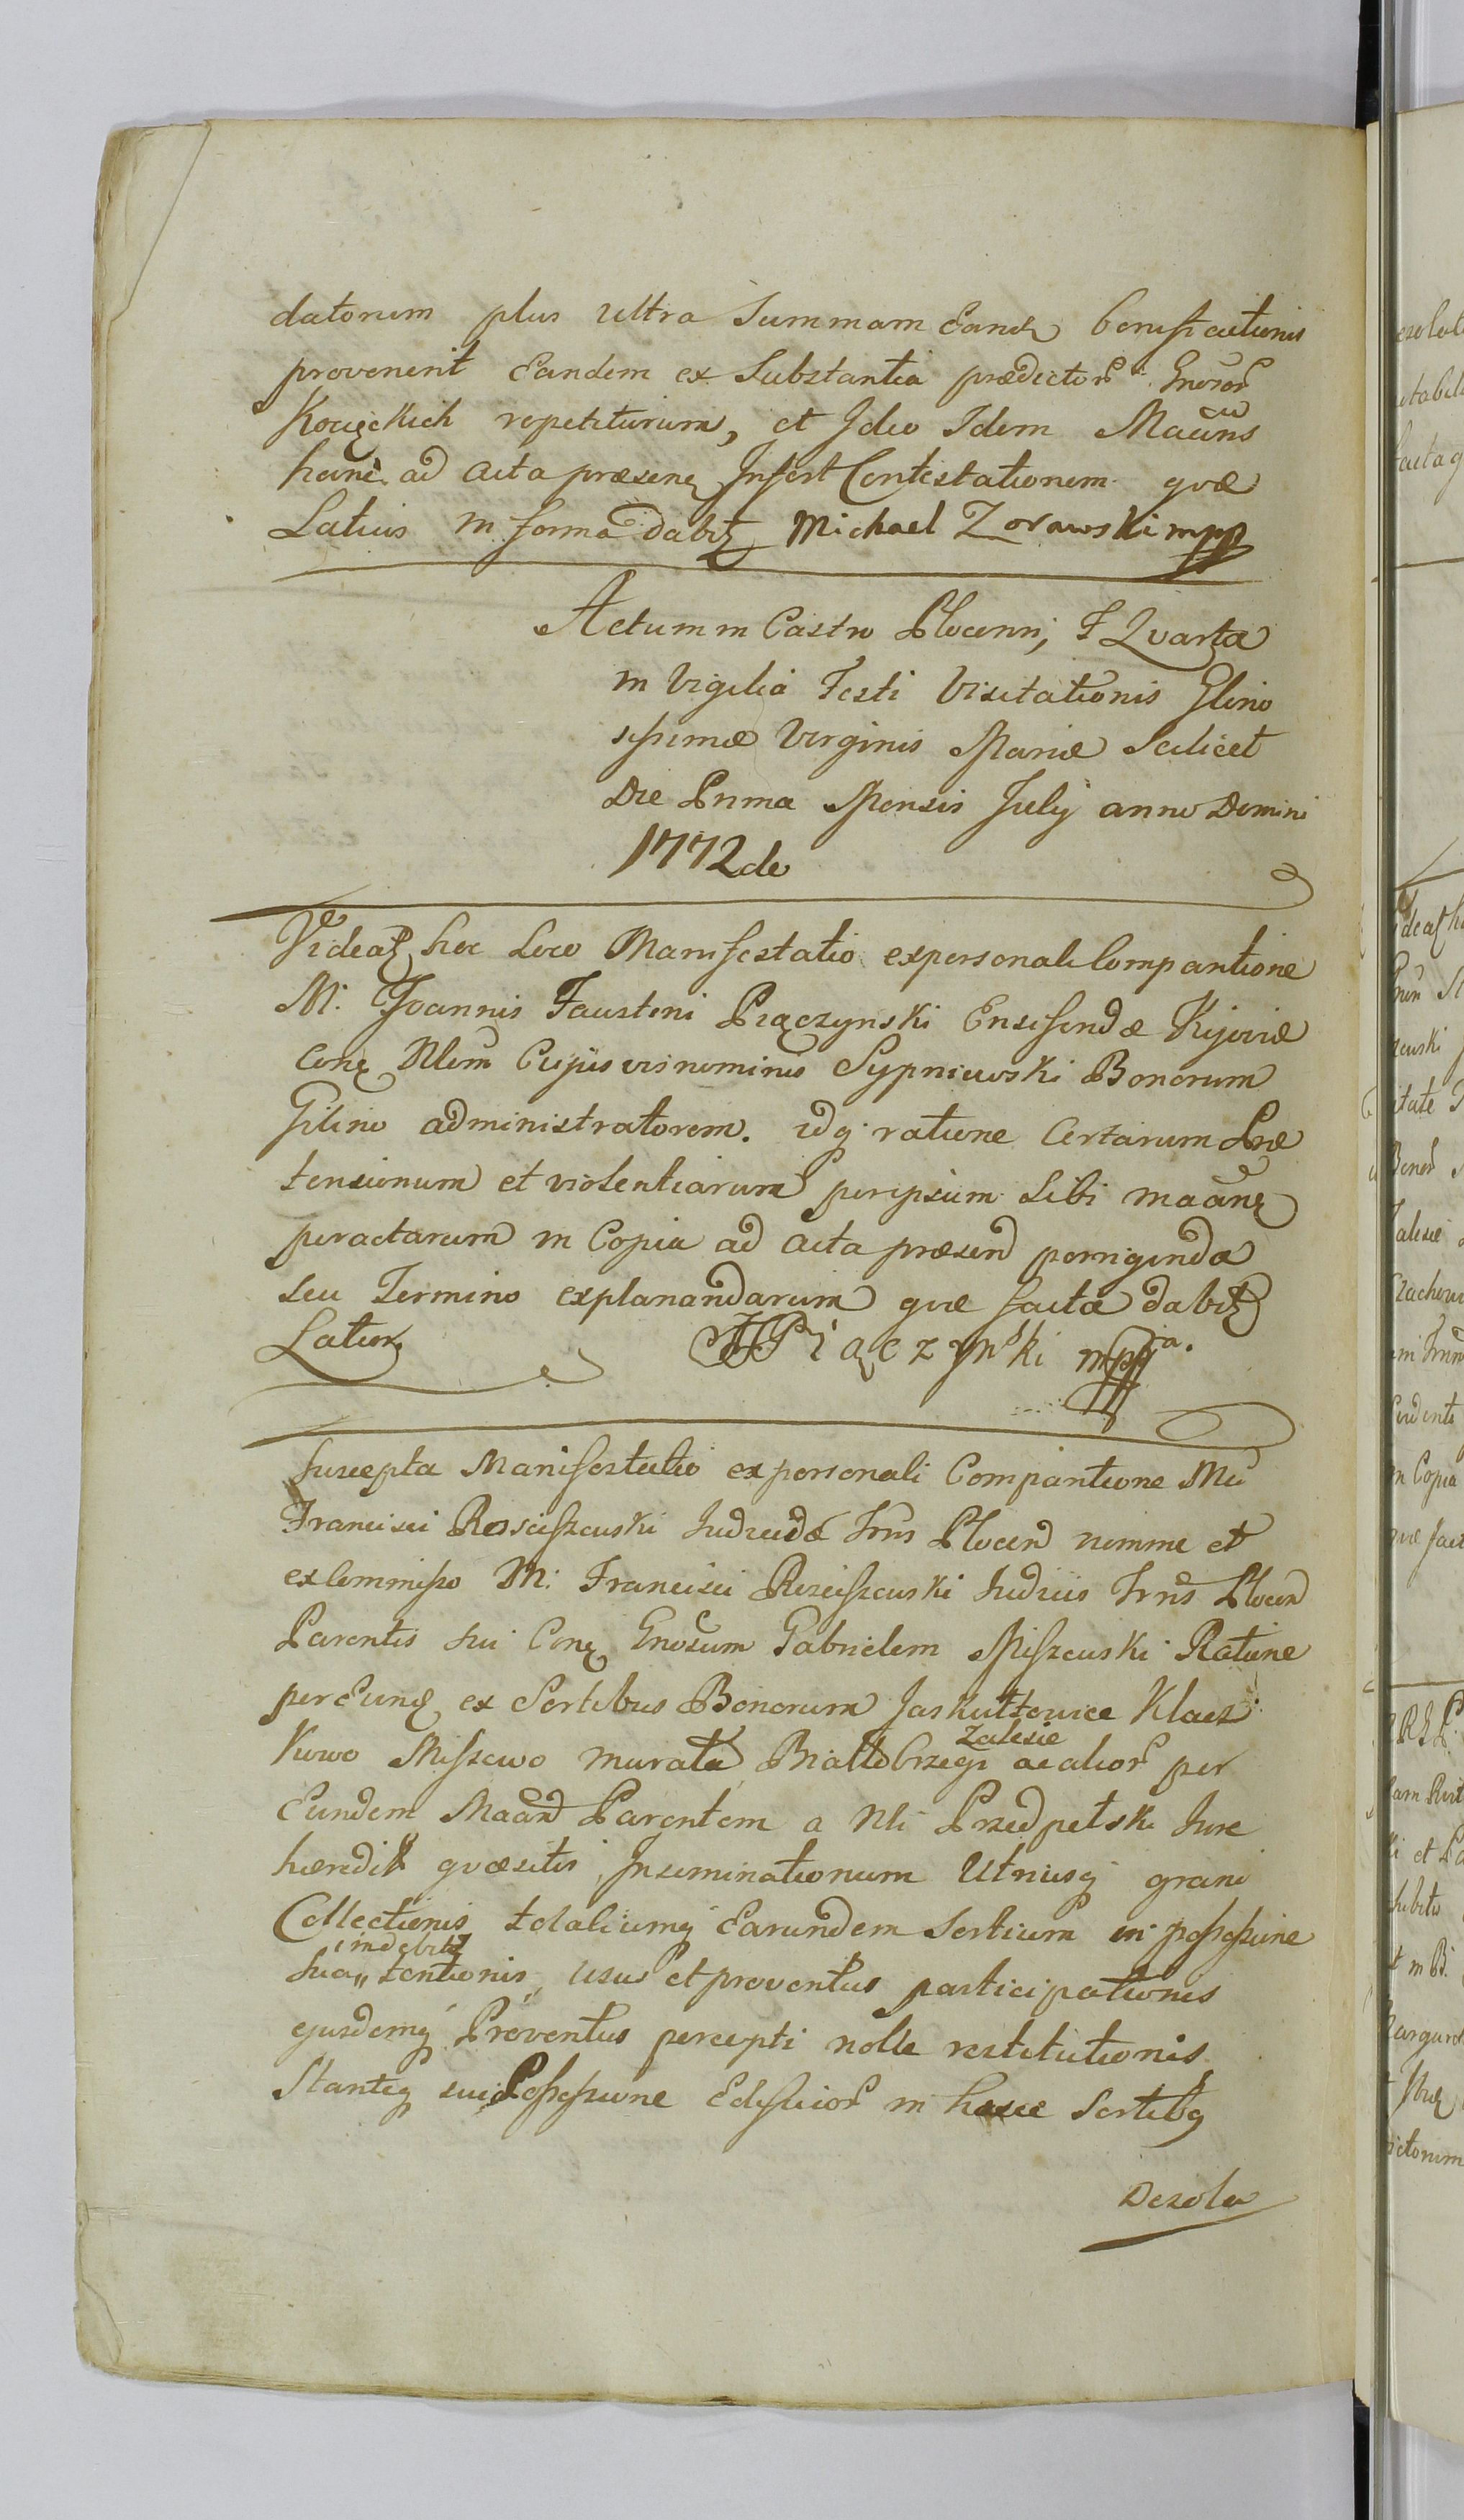 datorum plus ultra Summam Eand beneficationis
provenerit Eandem ex Substantia prædictor Gnoror
Kocięckich repetiturum, et Ideo Idem Mačns
hanc ad acta præsene Infert Contestationem quæ
Latius in forma dabitz Michael Zorawski mpp
Actum in Castro Plocenn, F Quarta
in Vigilia Festi Visitationis Glorio
sissimæ Virginis Mariæ Scilicet
Die Prima Mensis July anno Domini
1772do
Videatz hoc Loco Manifestatio ex personali Comparitione
M. Joannis Faustini Piączynski Ensiferidæ Kijoviæ
Conę Nlem Cujusvis nominis Sypniewski Bonorum
Gilino administratorem. idq ratione Certarum Præ
tensionum et violentiarum per ipsum Sibi maanę
peractarum in Copia ad acta præsend porrigenda
seu Termino explanandarum quæ facta dabitz
Latior JFPiączyński mppa.
Suscepta Manifestatio ex personali Comparitione Mci
Francisci Rosciszewski Judicidæ Trrns Plocen nomine et
ex Commisso M. Francisci Rosciszewski Judicis Trrns Plocen
Parentis sui Conę Gnosum Gabrielem Miszewski Ratione
per Eund ex Sortibus Bonorum Jaskułtowice Klacz
kowo Miszewo murata Białobrzegi Zalesie ac alior per
Eundem Maand Parentem a Nli Przedpełski Jure
hæredit quæsitis Inseminationum Utriusq grani
Collectionis totaliumq Earundem Sortium in possessione
indebitæ
sua „ tentionis „ usus et proventus participationis
ejusdemq Proventus percepti nolle restitutionis
Stanteq sui Possessione Edificior in hasce Sortibq
Desola